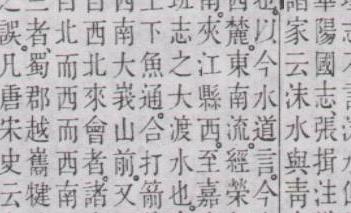 陽國志張揖注
家云沫水與青
以今水道言。今
麓。東南流。經榮
夾江縣西。至嘉
志之大渡水也。
下魚通。合打箭
南大峩山前。又
西北來會者。諸
北而西而西南
者。蜀郡越巂犍
誤。凡唐宋史云